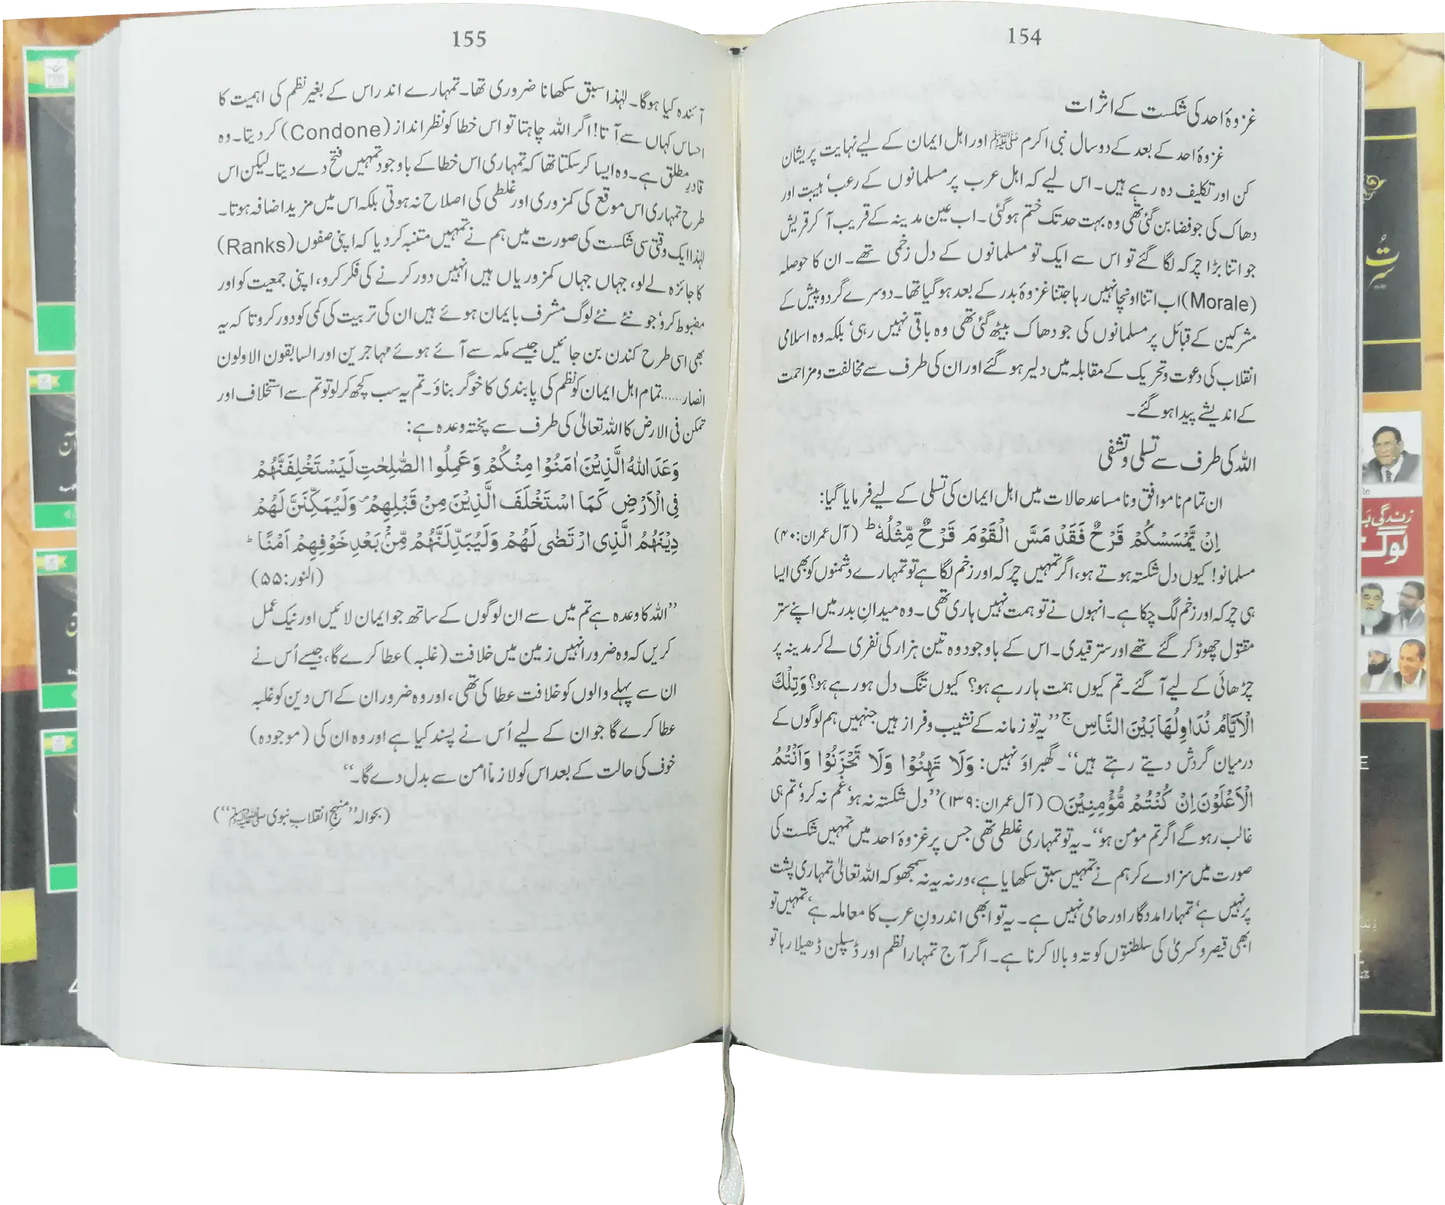 154
غزوۂ احد کی شکست کے اثرات
غزوۂ احد کے بعد کے دو سال نبی اکرم ﷺ اور اہل ایمان کے لیے نہایت پریشان
کن اور تکلیف دہ رہے ہیں۔ اس لیے کہ اہل عرب پر مسلمانوں کے رعب‘ ہیبت اور
دھاک کی جو فضا بن گئی تھی وہ بہت حد تک ختم ہو گئی۔ اب عین مدینہ کے قریب آ کر قریش
جو اتنا بڑا چرکہ لگا گئے تو اس سے ایک تو مسلمانوں کے دل زخمی تھے۔ ان کا حوصلہ
(Morale) اب اتنا اونچا نہیں رہا جتنا غزوۂ بدر کے بعد ہو گیا تھا۔ دوسرے گرد و پیش کے
مشرکین کے قبائل پر مسلمانوں کی جو دھاک بیٹھ گئی تھی وہ باقی نہیں رہی‘ بلکہ وہ اسلامی
انقلاب کی دعوت و تحریک کے مقابلہ میں دلیر ہو گئے اور ان کی طرف سے مخالفت و مزاحمت
کے اندیشے پیدا ہو گئے۔
اللہ کی طرف سے تسلی و تشفی
ان تمام نا موافق و نا مساعد حالات میں اہل ایمان کی تسلی کے لیے فرمایا گیا:
اِنْ یَّمْسَسْکُمْ قَرْحٌ فَقَدْ مَسَّ الْقَوْمَ قَرْحٌ مِّثْلُہٗ ؕ (آل عمران:۴۰)
مسلمانو! کیوں دل شکستہ ہوتے ہو، اگر تمہیں چرکہ اور زخم لگا ہے تو تمہارے دشمنوں کو بھی ایسا
ہی چرکہ اور زخم لگ چکا ہے۔ انہوں نے تو ہمت نہیں ہاری تھی۔ وہ میدانِ بدر میں اپنے ستر
مقتول چھوڑ کر گئے تھے اور ستر قیدی۔ اس کے باوجود وہ تین ہزار کی نفری لے کر مدینہ پر
چڑھائی کے لیے آ گئے۔ تم کیوں ہمت ہار رہے ہو؟ کیوں تنگ دل ہو رہے ہو؟ وَتِلْکَ
الْاَیَّامُ نُدَاوِلُھَا بَیْنَ النَّاسِ ج ’’یہ تو زمانہ کے نشیب و فراز ہیں جنہیں ہم لوگوں کے
درمیان گردش دیتے رہتے ہیں‘‘۔ گھبراؤ نہیں: وَلَا تَہِنُوْا وَلَا تَحْزَنُوْا وَاَنْتُمُ
الْاَعْلَوْنَ اِنْ کُنْتُمْ مُّؤْمِنِیْنَ○ (آل عمران:۱۳۹) ’’دل شکستہ نہ ہو‘ غم نہ کرو‘ تم ہی
غالب رہو گے اگر تم مومن ہو‘‘۔ یہ تو تمہاری غلطی تھی جس پر غزوۂ احد میں تمہیں شکست کی
صورت میں سزا دے کر ہم نے تمہیں سبق سکھایا ہے، ورنہ یہ نہ سمجھو کہ اللہ تعالیٰ تمہاری پشت
پر نہیں ہے‘ تمہارا مددگار اور حامی نہیں ہے۔ یہ تو ابھی اندرونِ عرب کا معاملہ ہے‘ تمہیں تو
ابھی قیصر و کسریٰ کی سلطنتوں کو تہ و بالا کرنا ہے۔ اگر آج تمہارا نظم اور ڈسپلن ڈھیلا رہا تو
155
آئندہ کیا ہوگا۔ لہٰذا سبق سکھانا ضروری تھا۔ تمہارے اندر اس کے بغیر نظم کی اہمیت کا
احساس کہاں سے آتا! اگر اللہ چاہتا تو اس خطا کو نظر انداز (Condone) کر دیتا۔ وہ
قادرِ مطلق ہے۔ وہ ایسا کر سکتا تھا کہ تمہاری اس خطا کے باوجود تمہیں فتح دے دیتا۔ لیکن اس
طرح تمہاری اس موقع کی کمزوری اور غلطی کی اصلاح نہ ہوتی بلکہ اس میں مزید اضافہ ہوتا۔
لہٰذا ایک وقتی سی شکست کی صورت میں ہم نے تمہیں متنبہ کر دیا کہ اپنی صفوں (Ranks)
کا جائزہ لے لو، جہاں جہاں کمزوریاں ہیں انہیں دور کرنے کی فکر کرو، اپنی جمعیت کو اور
مضبوط کرو‘ جو نئے نئے لوگ مشرف بایمان ہوئے ہیں ان کی تربیت کی کمی کو دور کرو تا کہ یہ
بھی اسی طرح کندن بن جائیں جیسے مکہ سے آئے ہوئے مہاجرین اور السابقون الاولون
انصار...... تمام اہل ایمان کو نظم کی پابندی کا خوگر بناؤ۔ تم یہ سب کچھ کر لو تو تم سے استخلاف اور
تمکن فی الارض کا اللہ تعالیٰ کی طرف سے پختہ وعدہ ہے:
وَعَدَ اللّٰہُ الَّذِیْنَ اٰمَنُوْا مِنْکُمْ وَعَمِلُوا الصّٰلِحٰتِ لَیَسْتَخْلِفَنَّھُمْ
فِی الْاَرْضِ کَمَا اسْتَخْلَفَ الَّذِیْنَ مِنْ قَبْلِھِمْ ۪ وَلَیُمَکِّنَنَّ لَھُمْ
دِیْنَھُمُ الَّذِی ارْتَضٰی لَھُمْ وَلَیُبَدِّلَنَّھُمْ مِّنْۢ بَعْدِ خَوْفِھِمْ اَمْنًا ؕ
(النور:۵۵)
’’اللہ کا وعدہ ہے تم میں سے ان لوگوں کے ساتھ جو ایمان لائیں اور نیک عمل
کریں کہ وہ ضرور انہیں زمین میں خلافت (غلبہ) عطا کرے گا، جیسے اُس نے
ان سے پہلے والوں کو خلافت عطا کی تھی، اور وہ ضرور ان کے اس دین کو غلبہ
عطا کرے گا جو ان کے لیے اُس نے پسند کیا ہے اور وہ ان کی (موجودہ)
خوف کی حالت کے بعد اس کو لازماً امن سے بدل دے گا۔‘‘
(بحوالہ ’’منہج انقلاب نبوی ﷺ‘‘)
زندگی
لوگ